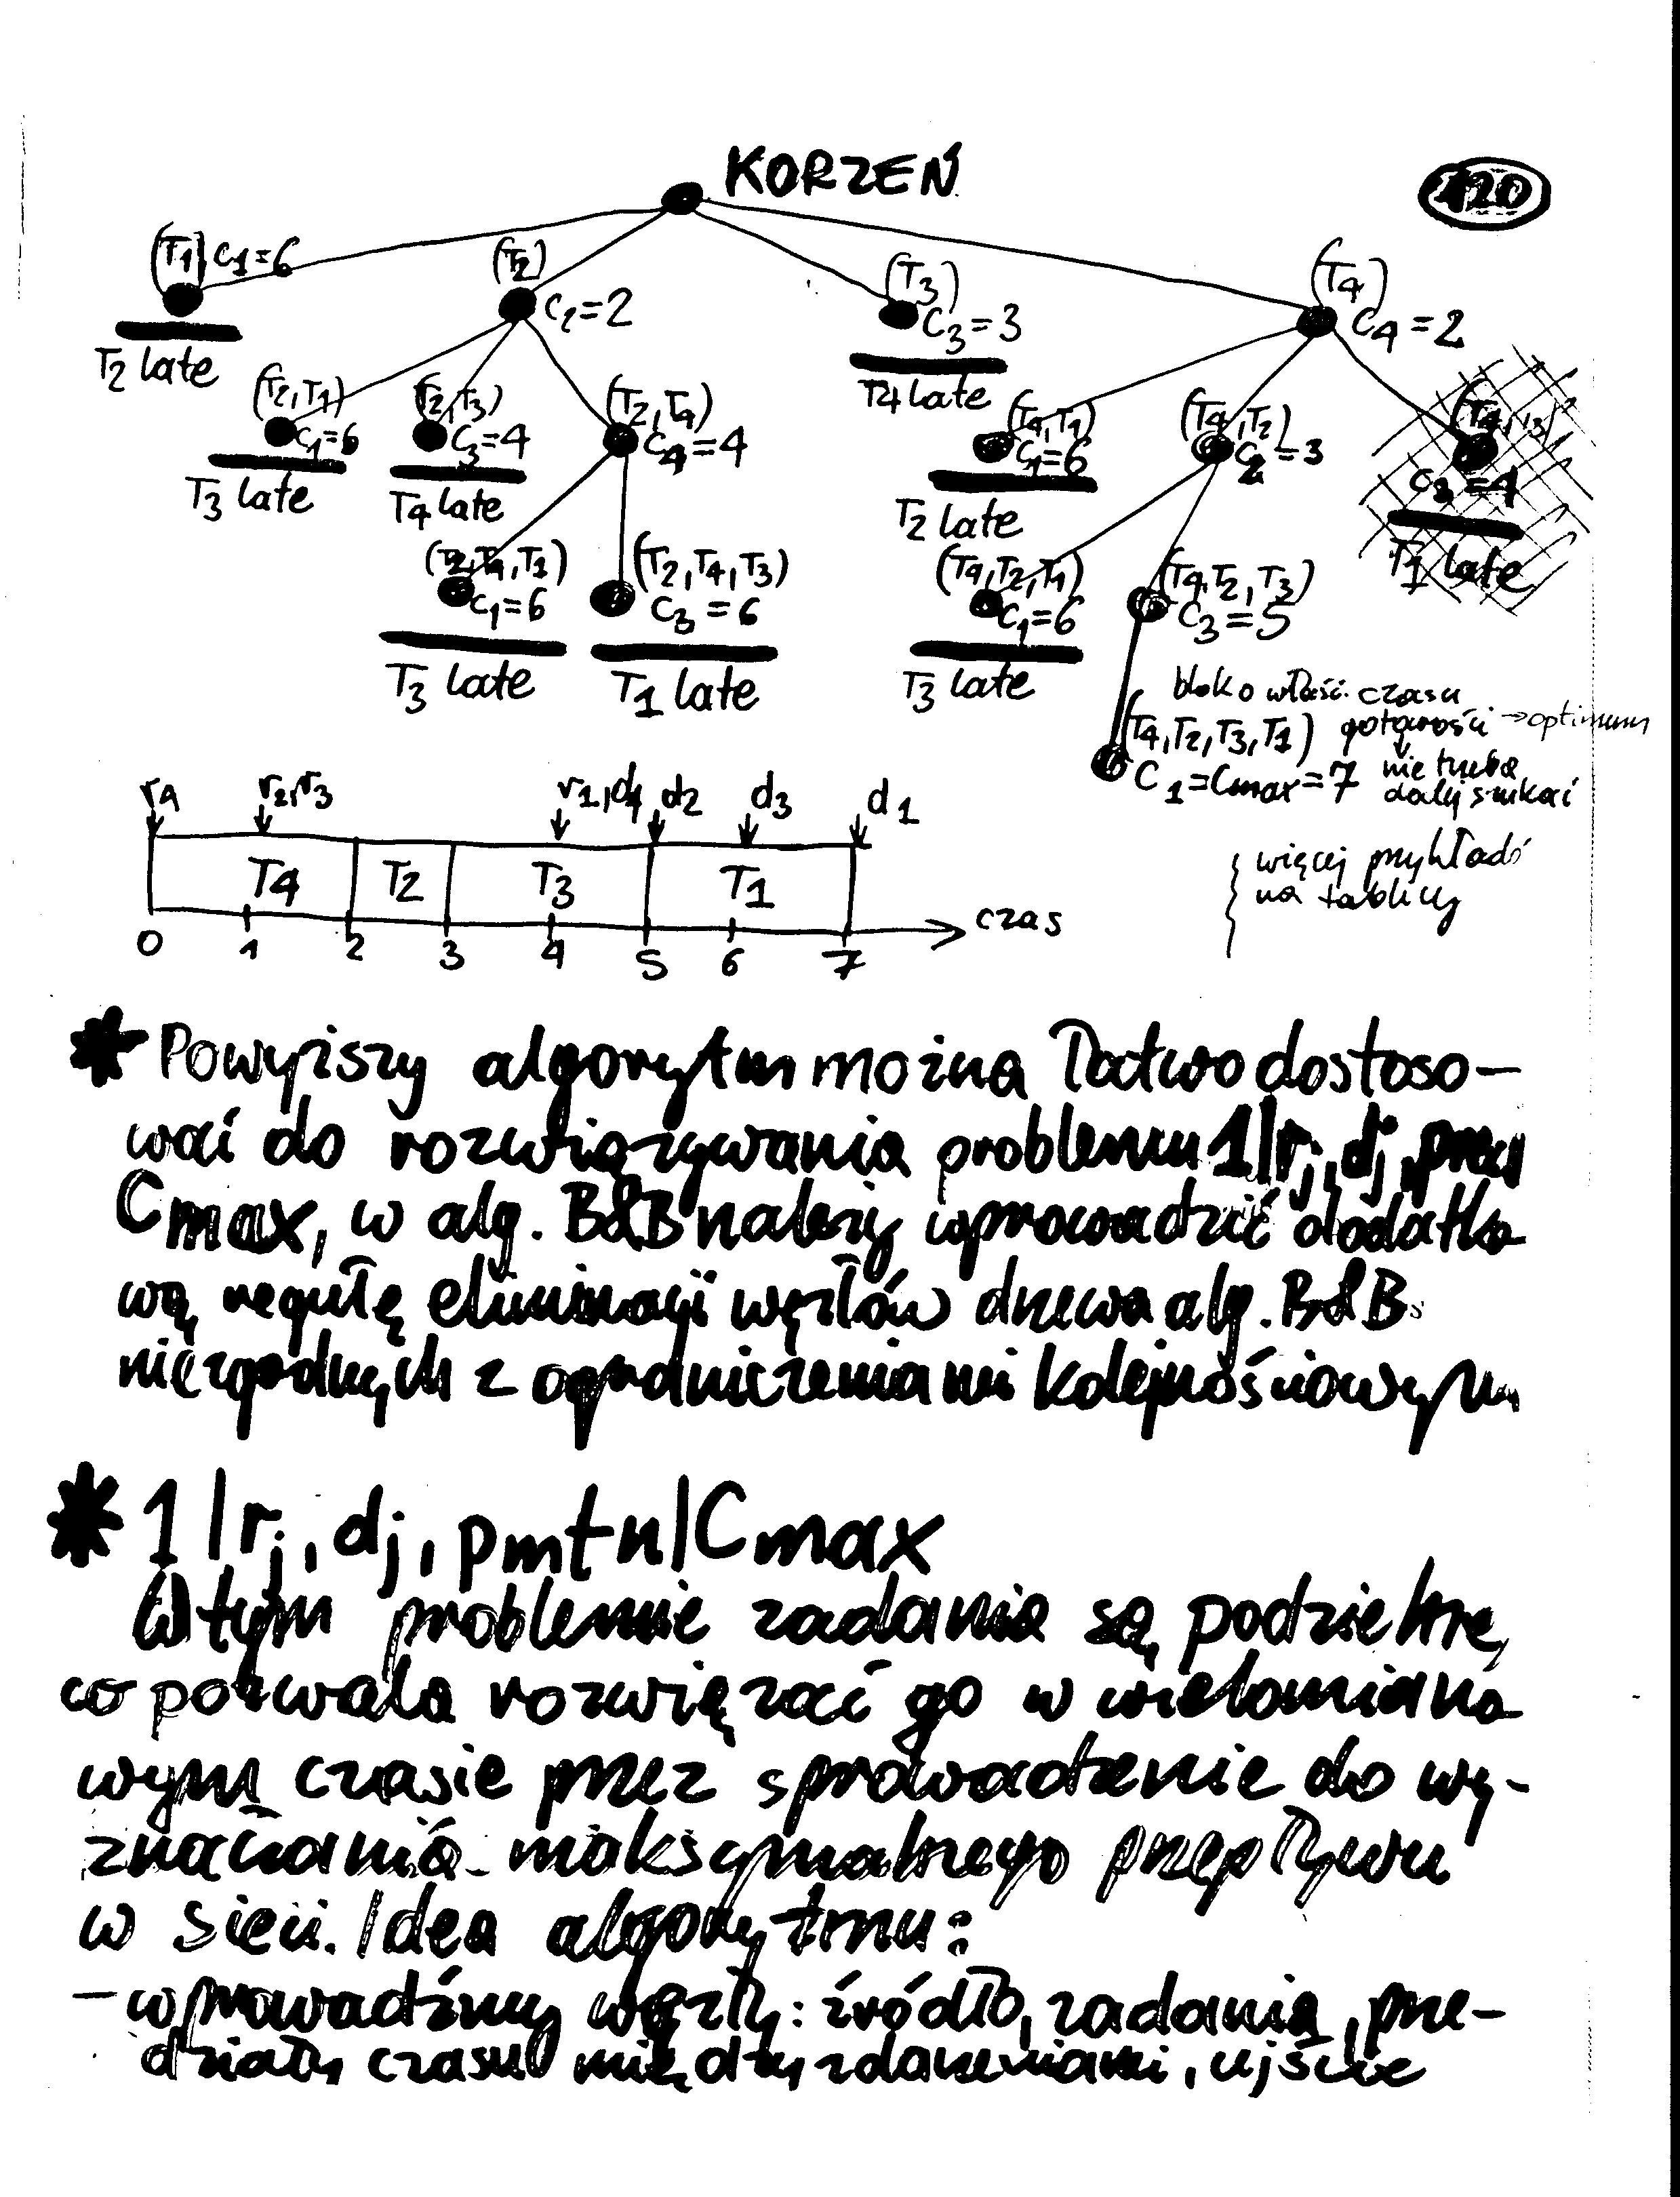 KORZEŃ
120
(T1) C1=6
(T2)
C2=2
(T3)
C3=3
(T4)
C4=2
T2 late
T4 late
(T2,T1)
C1=6
T3 late
(T2,T3)
C3=4
T4 late
(T2,T4)
C4=4
(T4,T1)
C1=6
T2 late
(T4,T2)
C2=3
(T4,T3)
C3=4
T1 late
(T2,T4,T1)
C1=6
T3 late
(T2,T4,T3)
C3=6
T1 late
(T4,T2,T1)
C1=6
T3 late
(T4,T2,T3)
C3=5
blok o właśc. czasu
(T4,T2,T3,T1) gotowości → optimum
C1=Cmax=7 nie trzeba
dalej szukać
r4 r2,r3 r1,d4 d2 d3 d1
T4 T2 T3 T1
0 1 2 3 4 5 6 7 czas
więcej przykładó
na tablicy
* Powyższy algorytm można łatwo dostoso-
wać do rozwiązywania problemu 1|rj,dj,prec|
Cmax, w alg. B&B należy wprowadzić dodatko
wą regułę eliminacji węzłów drzewa alg. B&B
niezgodnych z ograniczeniami kolejnościowym
* 1|rj,dj,pmtn|Cmax
W tym problemie zadania są podzielne,
co pozwala rozwiązać go w wielomiano
wym czasie przez sprowadzenie do wy-
znaczania maksymalnego przepływu
w sieci. Idea algorytmu:
- wprowadźmy węzły: źródło, zadania, prze-
działy czasu między zdarzeniami, ujście